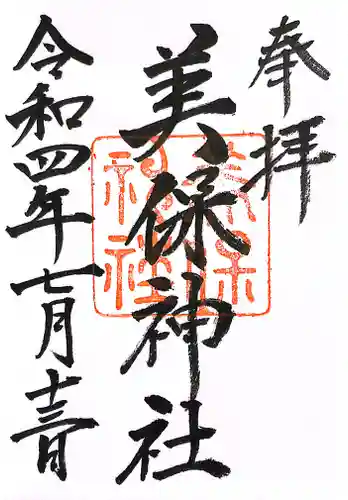 奉拝
美保神社
美保
神社
令和四年七月十三日